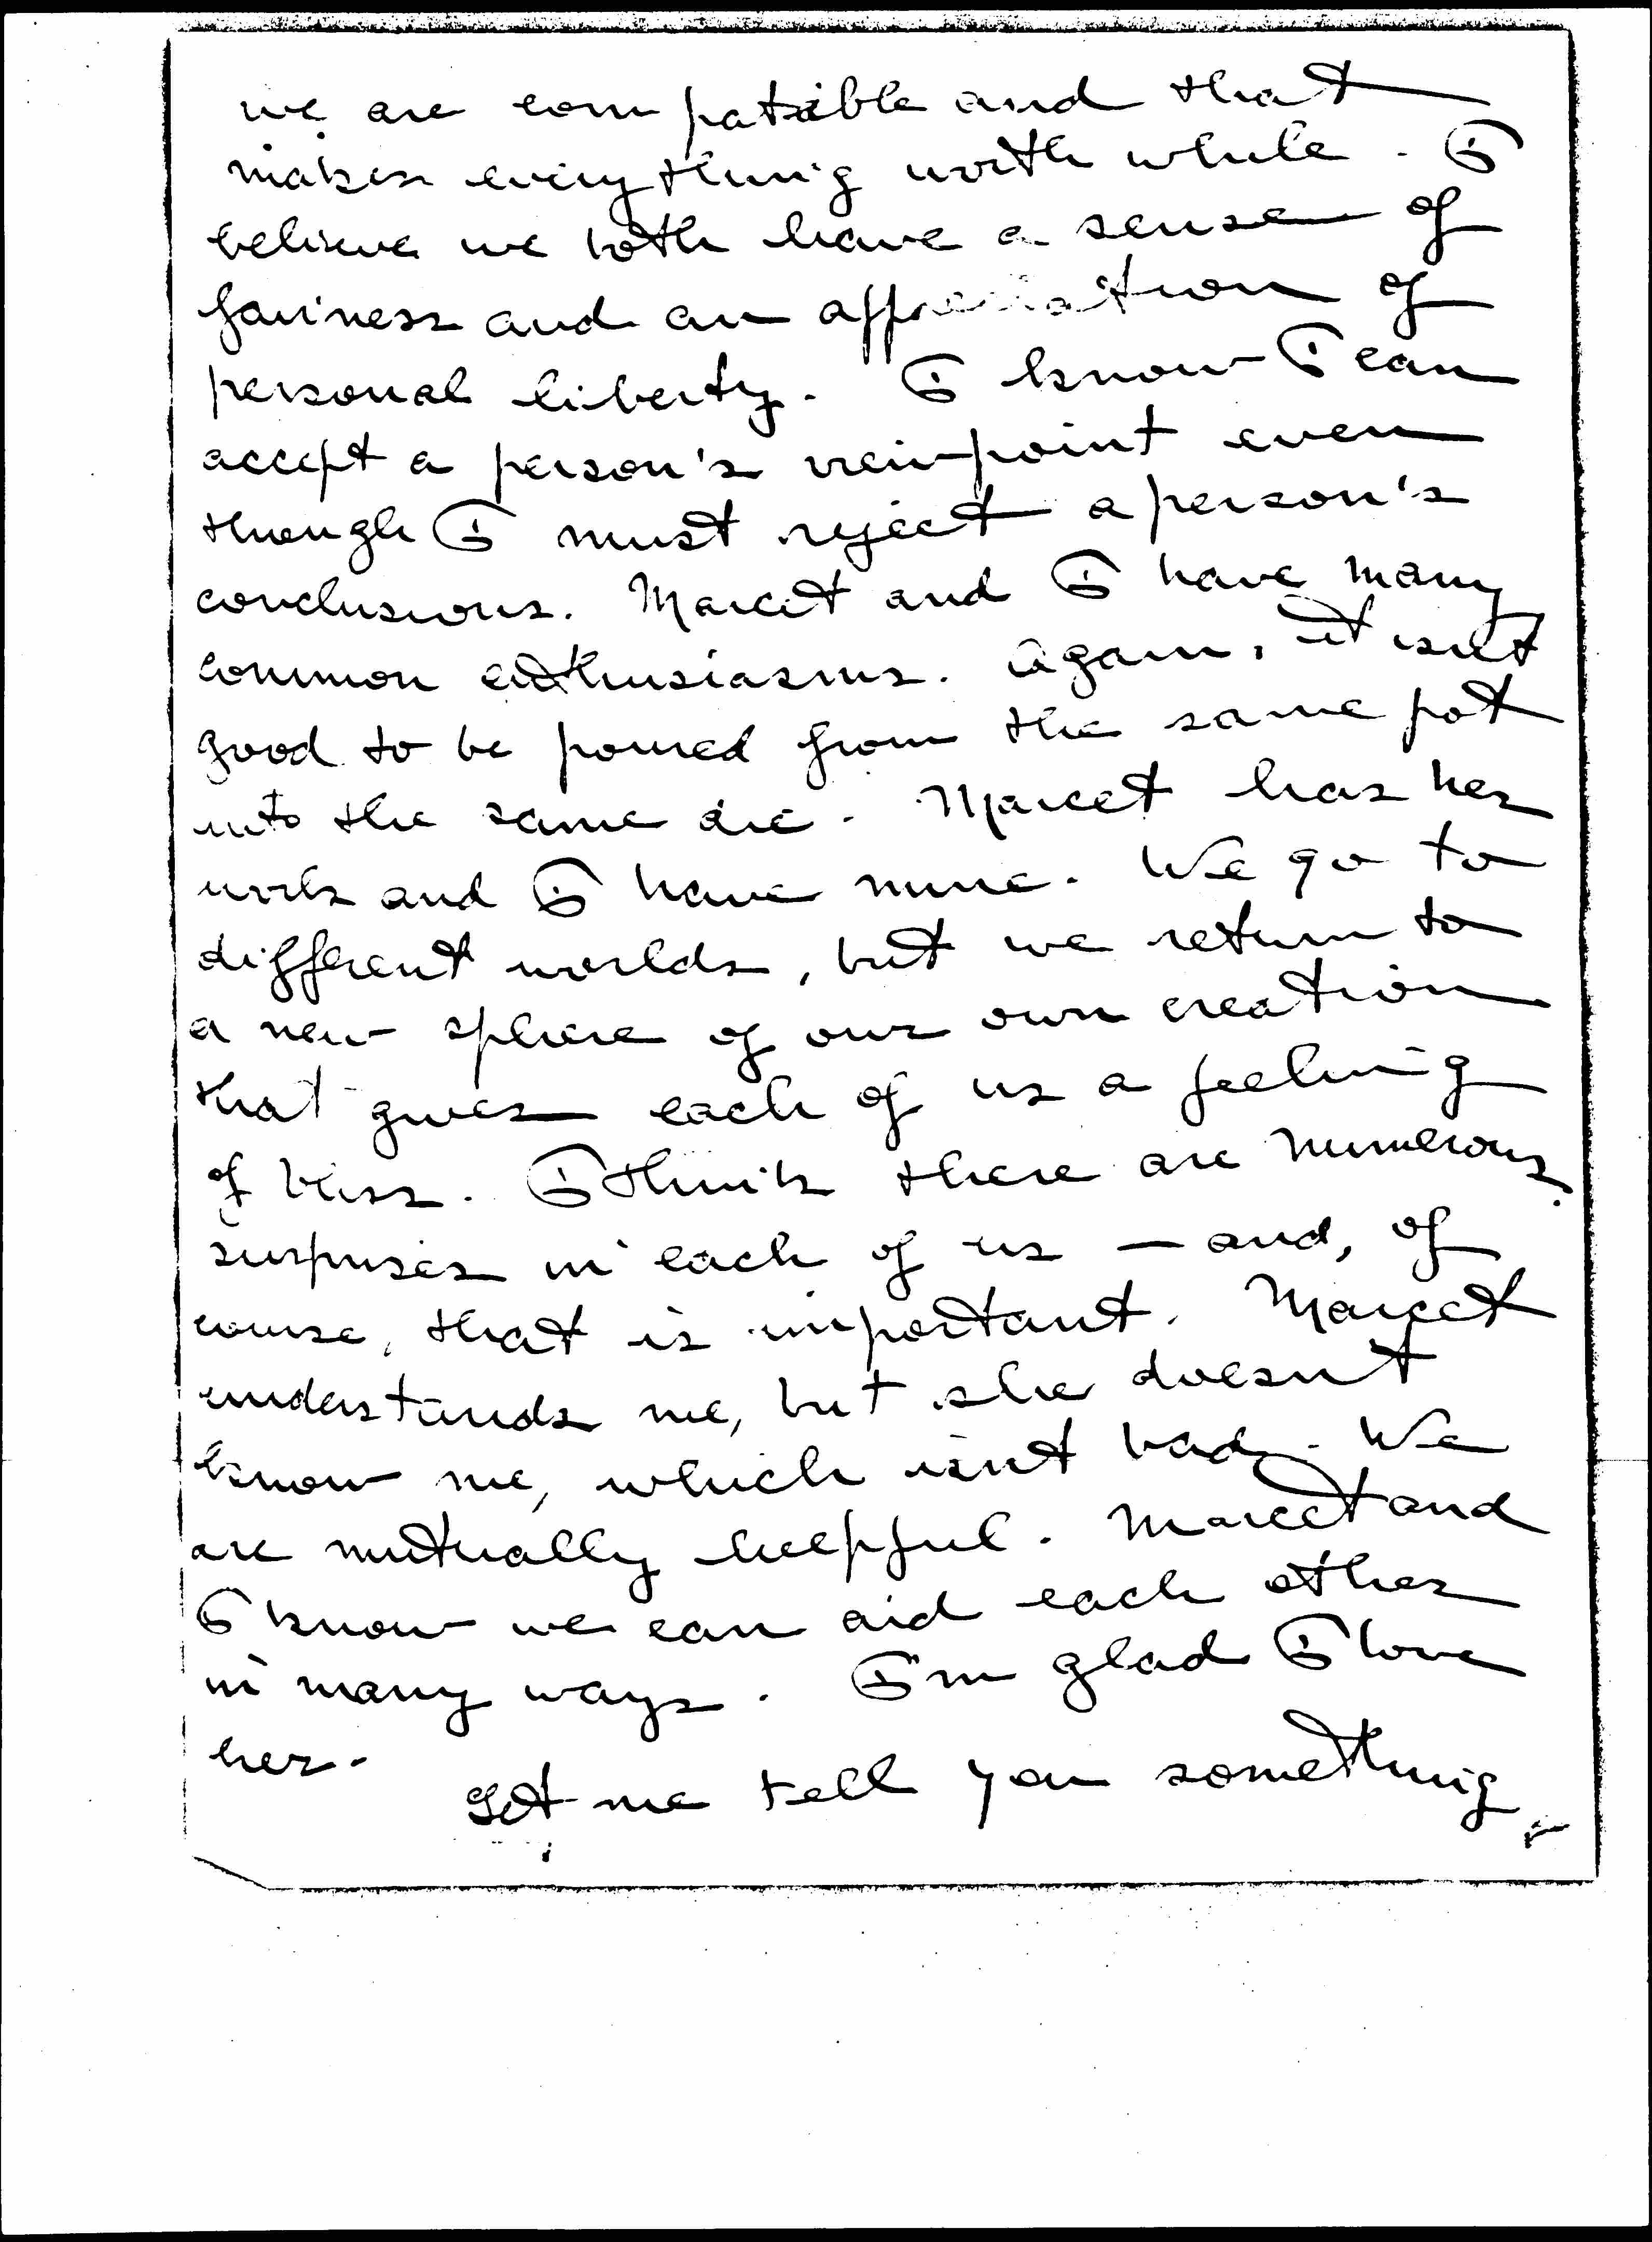 we are compatable and that
makes everything worth while. I
believe we both have a sense of
fairness and an appreciation of
personal liberty. I know I can
accept a person's viewpoint even
though I must reject a person's
conclusions. Marcet and I have many
common enthusiasms. Again, it isn't
good to be poured from the same pot
into the same die. Marcet has her
work and I have mine. We go to
different worlds, but we return to
a new sphere of our own creation
that gives each of us a feeling
of bliss. I think there are numerous
surprises in each of us — and, of
course, that is important. Marcet
understands me, but she doesn't
know me, which isn't bad. We
are mutually helpful. Marcet and
I know we can aid each other
in many ways. I'm glad I love
her.
Let me tell you something